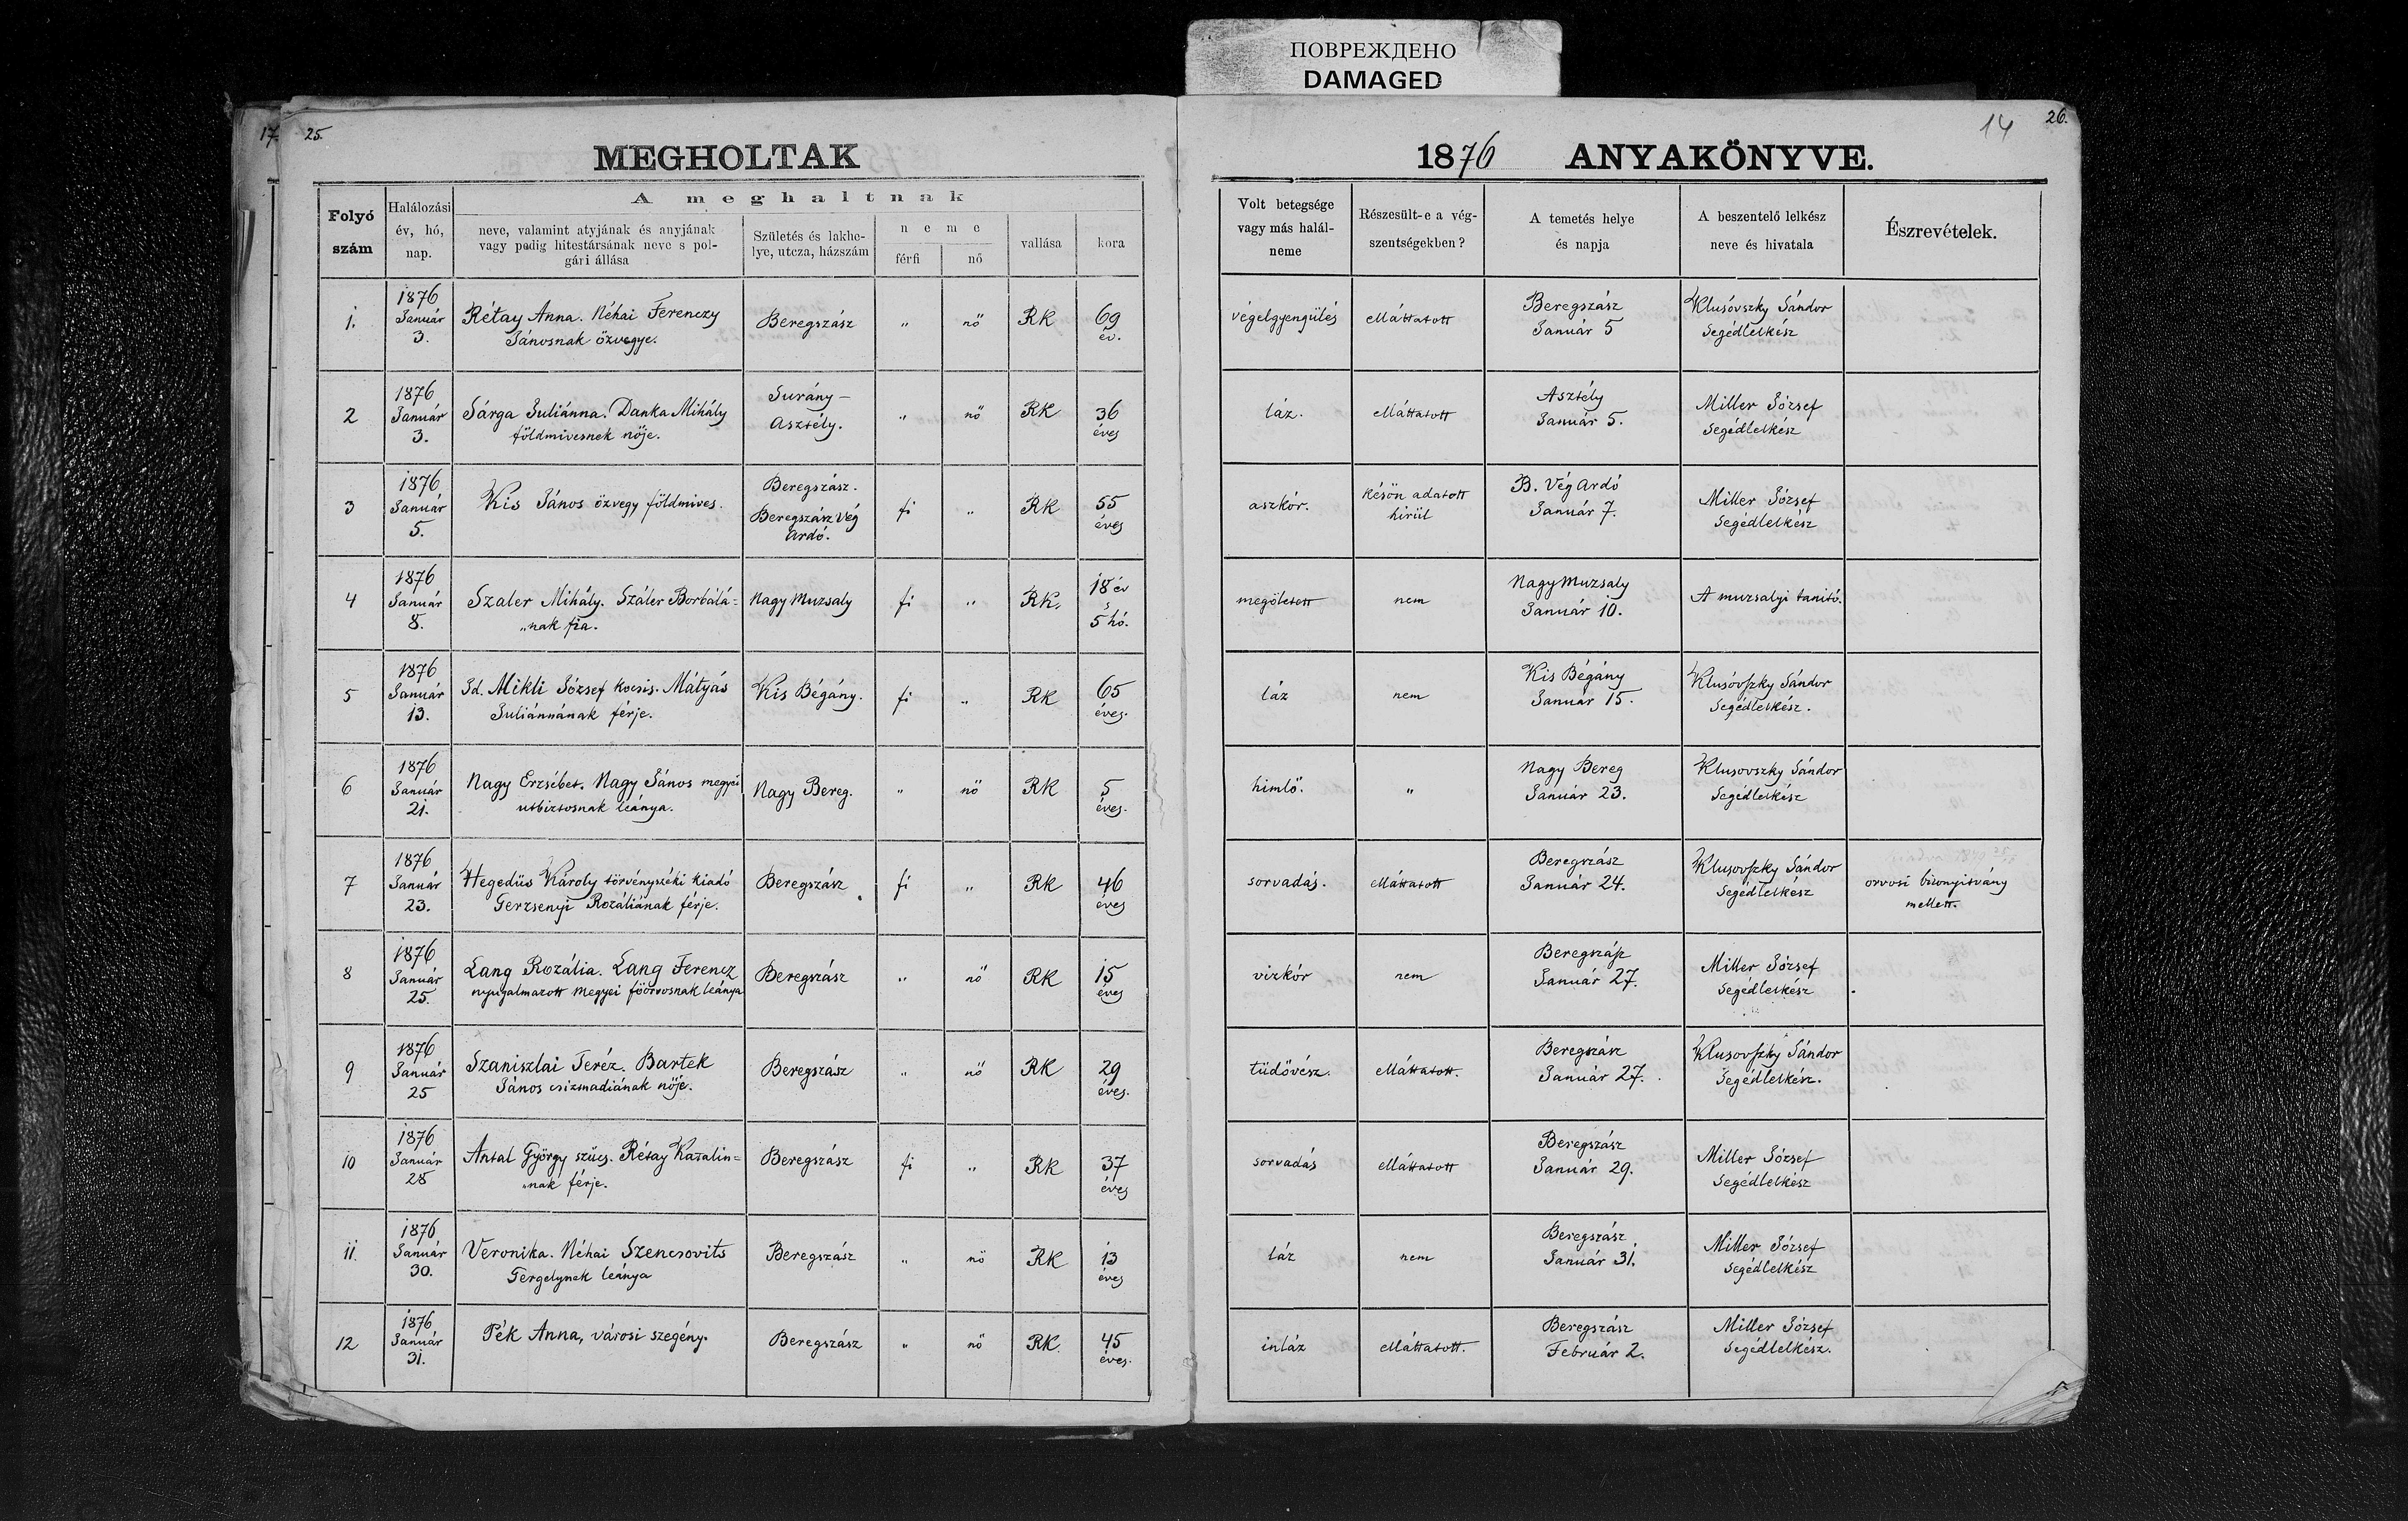 ПОВРЕЖДЕНО
DAMAGED
17. 25.
14 26.
MEGHOLTAK
1876 ANYAKÖNYVE.
Folyó szám
Halálozási év, hó, nap.
A meghaltnak
neve, valamint atyjának és anyjának
vagy pedig hitestársának neve s pol-
gári állása
Születés és lakhe-
lye, utcza, házszám
neme
férfi
nő
vallása
kora
Volt betegsége
vagy más halál-
neme
Részesült-e a vég-
szentségekben?
A temetés helye
és napja
A beszentelő lelkész
neve és hivatala
Észrevételek.
1.
1876
Január
3.
Rétay Anna. Néhai Ferenczy
Jánosnak özvegye.
Beregszász
"
nő
RK
69
év.
végelgyengülés
elláttatott
Beregszász
Január 5
Klusóvszky Sándor
Segédlelkész
2
1876
Január
3.
Sárga Juliánna. Danka Mihály
földmivesnek nője.
Surány-
Asztély.
"
nő
RK
36
éves
láz.
elláttatott
Asztély
Január 5.
Miller József
Segédlelkész
3
1876
Január
5.
Kis János özvegy földmives.
Beregszász.
Beregszász Vég
Ardó.
fi
"
RK
55
éves
aszkór.
későn adatott
hirül
B. Vég Ardó
Január 7.
Miller József
Segédlelkész
4
1876
Január
8.
Szaler Mihály. Száler Borbálá=
"nak fia.
Nagy Muzsaly
fi
"
RK.
18 év
s
5 hó.
megöletett
nem
Nagy Muzsaly
Január 10.
A muzsalyi tanitó.
5
1876
Január
13.
Id. Mikli József kocsis. Mátyás
Juliánnának férje.
Kis Bégány.
fi
"
RK
65
éves.
láz
nem
Kis Bégány
Január 15.
Klusóvszky Sándor
Segédlelkész.
6
1876
Január
21.
Nagy Erzsébet. Nagy János megyei
utbiztosnak leánya.
Nagy Bereg.
"
nő
RK
5
éves.
himlő.
"
Nagy Bereg
Január 23.
Klusovszky Sándor
Segédlelkész
7
1876
Január
23.
Hegedüs Károly törvényszéki kiadó
Gerzsenyi Rozáliának férje.
Beregszász
fi
"
RK
46
éves
sorvadás.
elláttatott
Beregszász
Január 24.
Klusovszky Sándor
Segédlelkész
orvosi bizonyitvány
mellett.
8
1876
Január
25.
Lang Rozália. Lang Ferencz
nyugalmazott megyei főorvosnak leánya
Beregszász
"
nő
RK
15
éves
vizkór
nem
Beregszász
Január 27.
Miller József
Segédlelkész
9
1876
Január
25
Szaniszlai Teréz. Bartek
János csizmadiának nője.
Beregszász
"
nő
RK
29
éves.
tüdővész.
elláttatott.
Beregszász
Január 27.
Klusovszky Sándor
Segédlelkész.
10
1876
Január
28
Antal György szücs. Rétay Katalin=
"nak férje.
Beregszász
fi
"
RK
37
éves
sorvadás
elláttatott
Beregszász
Január 29.
Miller József
Segédlelkész
11.
1876
Január
30.
Veronika. Néhai Szencsovits
Gergelynek leánya
Beregszász
"
nő
RK
13
éves
láz
nem
Beregszász
Január 31.
Miller József
Segédlelkész
12
1876
Január
31.
Pék Anna, városi szegény.
Beregszász
"
nő
RK.
45
éves.
inláz
elláttatott.
Beregszász
Február 2.
Miller József
Segédlelkész.